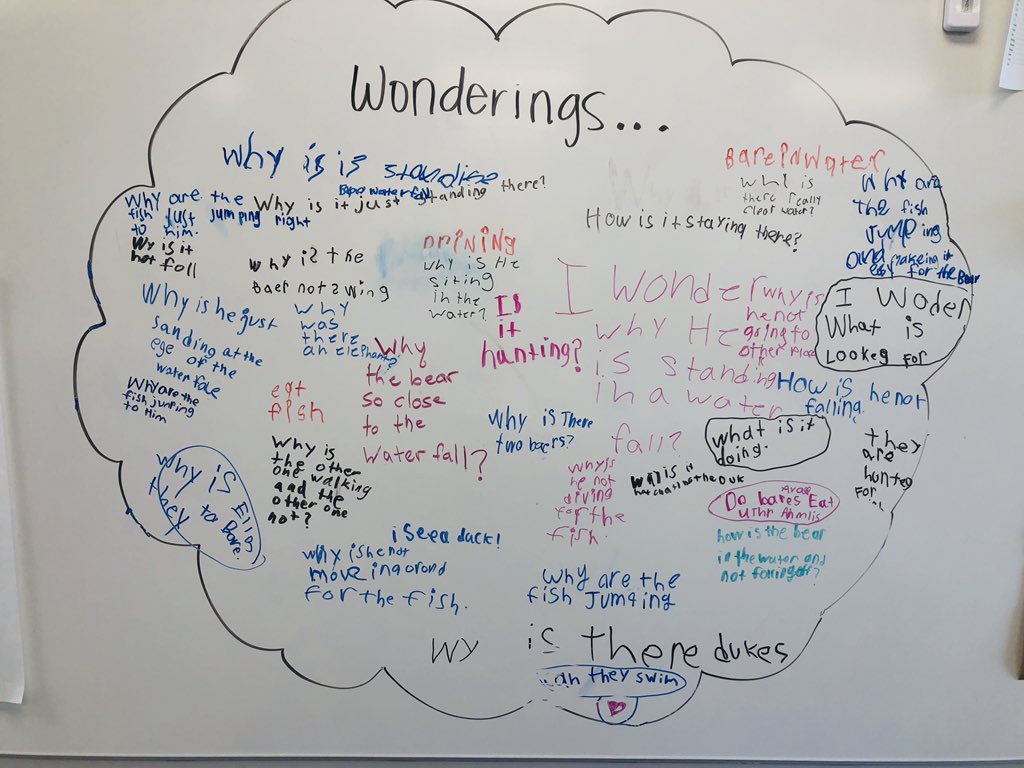 Wonderings...
Why is is standing
Why are the
fish Just Jumping right
to him.
Why is it just standing there?
Wy is it
not fall
why is the
Baer not swing
DriNiNG
why is He
siting
in the
water?
BarePNWater
why is
there really
clear water?
How is it staying there?
Why are
the fish
Jumping
and makeing it
esy for the Bear
Why is he just
sanding at the
ege of the
water fale
Why are the
fish jumping
to Him
Why
was
there
an Elephant?
Why
the bear
so close
to the
water fall?
Is
it
hunting?
I wonder
why He
is standing
in a water
fall?
why is
he not
going to
other place
I Woder
What is
Lookeg For
How is he not
falling.
eat
fish
Why is
the other
one walking
and the
other one
not?
Why is There
two baers?
what is it
doing.
they
are
hunted
For
why is
he not
diving
for the
fish.
Do bares Eat
uthr Ahmlis
how is the bear
in the water and
not falling off?
they
i see a duck!
why is he not
moveing arond
for the fish.
why are the
fish Jumping
wy is there dukes
they swim